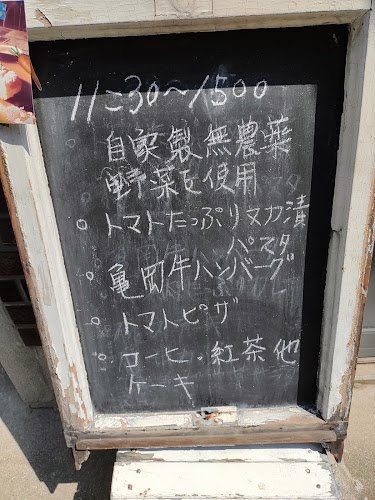 11:30~1500
自家製無農薬
野菜を使用
○トマトたっぷりヌカ漬
パスタ
○亀岡牛ハンバーグ
○トマトピザ
○コーヒ・紅茶他
ケーキ